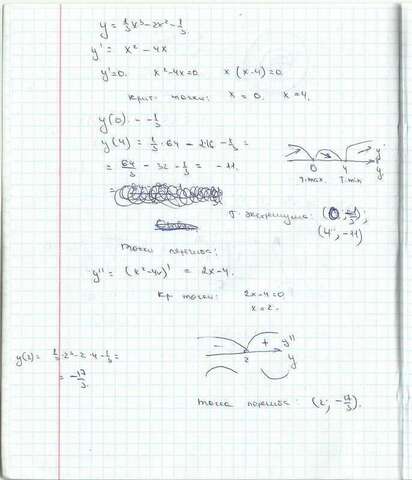 y = 1/3 x³ - 2x² - 1/3
y' = x² - 4x
y' = 0. x² - 4x = 0 x (x-4) = 0.
Крит. точки: x = 0, x = 4.
y(0) = -1/3
y(4) = 1/3 · 64 - 2·16 - 1/3 =
= 64/3 - 32 - 1/3 = -11.
y'
0 4 y
т.max. т.min
Т. экстремума: (0; -1/3);
(4; -11)
Точки перегиба:
y'' = (x² - 4x)' = 2x - 4.
Кр точки: 2x - 4 = 0
x = 2.
y(2) = 1/3 · 2³ - 2 · 4 - 1/3 =
= -17/3.
- + y''
2 y
Точка перегиба: (2; -17/3).